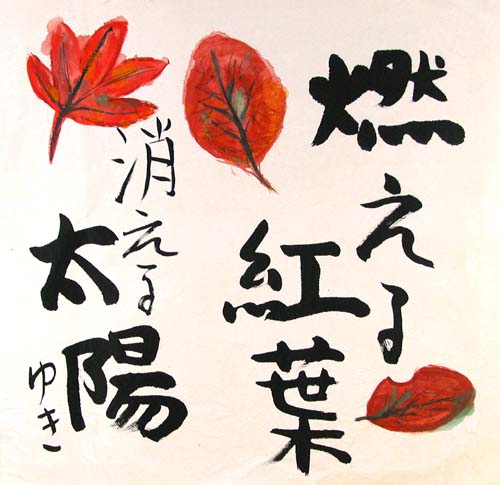 燃える
紅葉
消える
太陽
ゆき